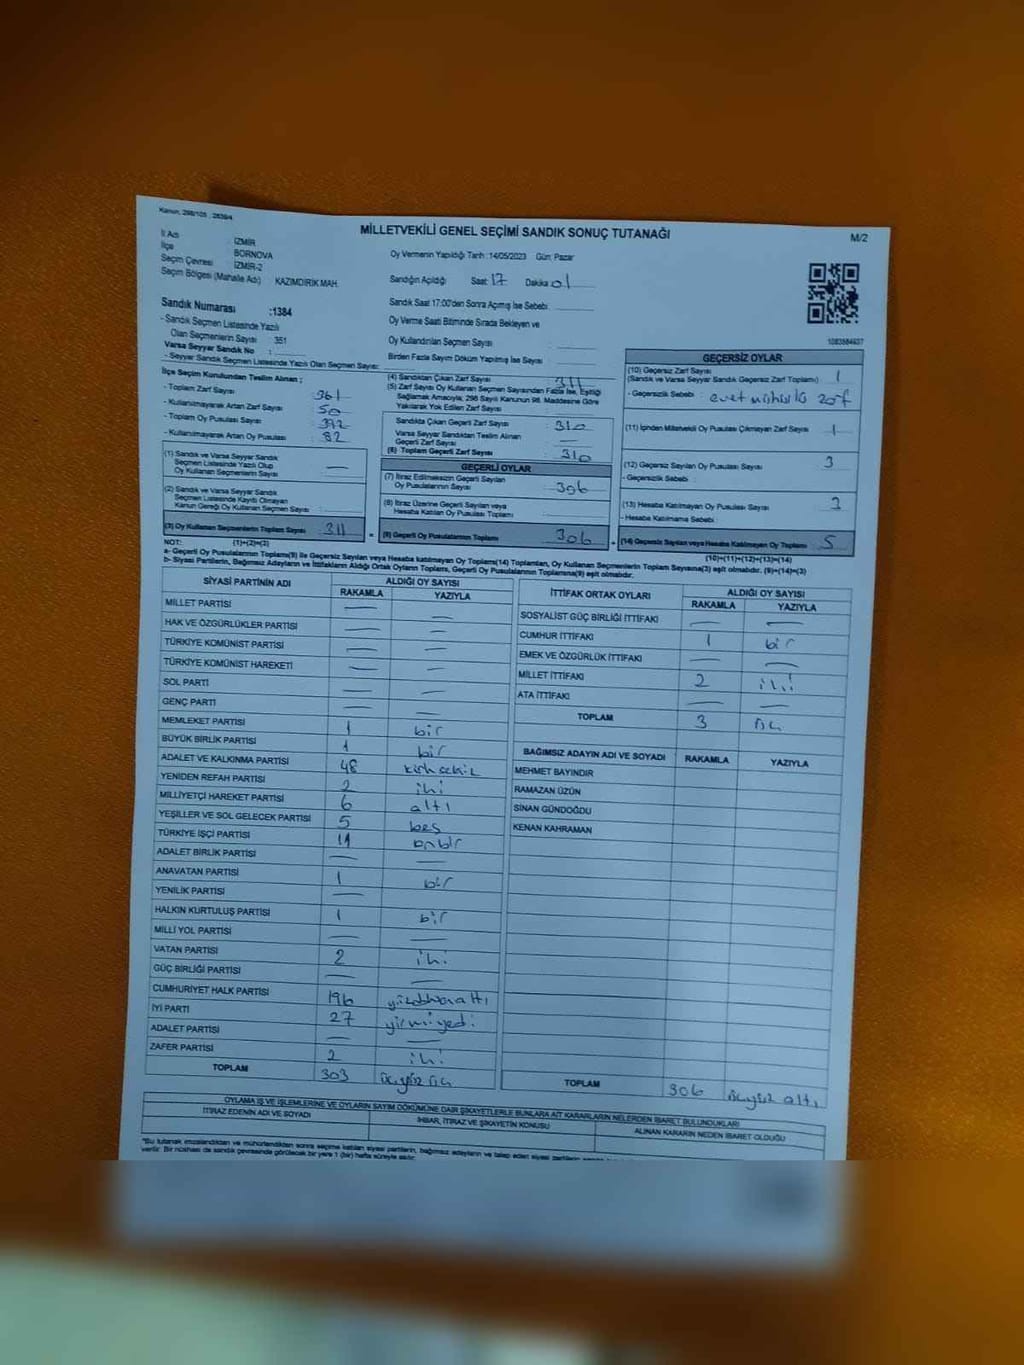 Kanun: 298/105 , 2839/4
MİLLETVEKİLİ GENEL SEÇİMİ SANDIK SONUÇ TUTANAĞI
M/2
İl Adı : İZMİR
İlçe : BORNOVA
Seçim Çevresi : İZMİR-2
Seçim Bölgesi (Mahalle Adı) : KAZIMDİRİK MAH.
Oy Vermenin Yapıldığı Tarih :14/05/2023 Gün: Pazar
Sandığın Açıldığı Saat: 17 Dakika: 01
Sandık Saat 17:00'den Sonra Açılmış İse Sebebi:
Oy Verme Saati Bitiminde Sırada Bekleyen ve
Oy Kullandırılan Seçmen Sayısı :
Birden Fazla Sayım Döküm Yapılmış İse Sayısı :
1083584937
Sandık Numarası :1384
- Sandık Seçmen Listesinde Yazılı
Olan Seçmenlerin Sayısı : 351
Varsa Seyyar Sandık No :
- Seyyar Sandık Seçmen Listesinde Yazılı Olan Seçmen Sayısı:
İlçe Seçim Kurulundan Teslim Alınan ;
- Toplam Zarf Sayısı : 361
- Kullanılmayarak Artan Zarf Sayısı : 50
- Toplam Oy Pusulası Sayısı : 392
- Kullanılmayarak Artan Oy Pusulası : 82
(1) Sandık ve Varsa Seyyar Sandık
Seçmen Listesinde Yazılı Olup
Oy Kullanan Seçmenlerin Sayısı : —
(2) Sandık ve Varsa Seyyar Sandık
Seçmen Listesinde Kayıtlı Olmayan
Kanun Gereği Oy Kullanan Seçmen Sayısı :
(3) Oy Kullanan Seçmenlerin Toplam Sayısı : 311
(4) Sandıktan Çıkan Zarf Sayısı : 311
(5) Zarf Sayısı Oy Kullanan Seçmen Sayısından Fazla İse, Eşitliği
Sağlamak Amacıyla; 298 Sayılı Kanunun 98. Maddesine Göre
Yakılarak Yok Edilen Zarf Sayısı :
Sandıkta Çıkan Geçerli Zarf Sayısı : 310
Varsa Seyyar Sandıktan Teslim Alınan
Geçerli Zarf Sayısı : —
(6) Toplam Geçerli Zarf Sayısı : 310
GEÇERLİ OYLAR
(7) İtiraz Edilmeksizin Geçerli Sayılan
Oy Pusulalarının Sayısı : 306
(8) İtiraz Üzerine Geçerli Sayılan veya
Hesaba Katılan Oy Pusulası Toplamı :
(9) Geçerli Oy Pusulalarının Toplamı : 306
GEÇERSİZ OYLAR
(10) Geçersiz Zarf Sayısı
(Sandık ve Varsa Seyyar Sandık Geçersiz Zarf Toplamı) : 1
- Geçersizlik Sebebi : evet mühürlü zarf
(11) İçinden Milletvekili Oy Pusulası Çıkmayan Zarf Sayısı : 1
(12) Geçersiz Sayılan Oy Pusulası Sayısı : 3
- Geçersizlik Sebebi :
(13) Hesaba Katılmayan Oy Pusulası Sayısı :
- Hesaba Katılmama Sebebi :
(14) Geçersiz Sayılan veya Hesaba Katılmayan Oy Toplamı : 5
NOT: (1)+(2)=(3) (10)+(11)+(12)+(13)=(14)
a- Geçerli Oy Pusulaları Toplamı(9) ile Geçersiz Sayılan veya Hesaba katılmayan Oy Toplamı(14) Toplamları, Oy Kullanan Seçmenlerin Toplam Sayısına(3) eşit olmalıdır. (9)+(14)=(3)
b- Siyasi Partilerin, Bağımsız Adayların ve İttifakların Aldığı Ortak Oyların Toplamı, Geçerli Oy Pusulalarının Toplamına(9) eşit olmalıdır.
SİYASİ PARTİNİN ADI ALDIĞI OY SAYISI
RAKAMLA YAZIYLA
MİLLET PARTİSİ — —
HAK VE ÖZGÜRLÜKLER PARTİSİ — —
TÜRKİYE KOMÜNİST PARTİSİ — —
TÜRKİYE KOMÜNİST HAREKETİ — —
SOL PARTİ — —
GENÇ PARTİ — —
MEMLEKET PARTİSİ 1 bir
BÜYÜK BİRLİK PARTİSİ 1 bir
ADALET VE KALKINMA PARTİSİ 48 kırksekiz
YENİDEN REFAH PARTİSİ 2 iki
MİLLİYETÇİ HAREKET PARTİSİ 6 altı
YEŞİLLER VE SOL GELECEK PARTİSİ 5 beş
TÜRKİYE İŞÇİ PARTİSİ 11 onbir
ADALET BİRLİK PARTİSİ — —
ANAVATAN PARTİSİ 1 bir
YENİLİK PARTİSİ —
HALKIN KURTULUŞ PARTİSİ 1 bir
MİLLİ YOL PARTİSİ — —
VATAN PARTİSİ 2 iki
GÜÇ BİRLİĞİ PARTİSİ — —
CUMHURİYET HALK PARTİSİ 196 yüzdoksanaltı
İYİ PARTİ 27 yirmiyedi
ADALET PARTİSİ — —
ZAFER PARTİSİ 2 iki
TOPLAM 303 üçyüz üç
İTTİFAK ORTAK OYLARI ALDIĞI OY SAYISI
RAKAMLA YAZIYLA
SOSYALİST GÜÇ BİRLİĞİ İTTİFAKI — —
CUMHUR İTTİFAKI 1 bir
EMEK VE ÖZGÜRLÜK İTTİFAKI — —
MİLLET İTTİFAKI 2 iki
ATA İTTİFAKI — —
TOPLAM 3 üç
BAĞIMSIZ ADAYIN ADI VE SOYADI RAKAMLA YAZIYLA
MEHMET BAYINDIR
RAMAZAN ÜZÜN
SİNAN GÜNDOĞDU
KENAN KAHRAMAN
TOPLAM 306 üçyüz altı
OYLAMA İŞ VE İŞLEMLERİNE VE OYLARIN SAYIM DÖKÜMÜNE DAİR ŞİKAYETLERLE BUNLARA AİT KARARLARIN NELERDEN İBARET BULUNDUKLARI
İTİRAZ EDENİN ADI VE SOYADI İHBAR, İTİRAZ VE ŞİKAYETİN KONUSU ALINAN KARARIN NEDEN İBARET OLDUĞU
*Bu tutanak imzalandıktan ve mühürlendikten sonra seçime katılan siyasi partilerin, bağımsız adayların ve talep eden siyasi partilerin
verilir. Bir nüshası da sandık çevresinde görülecek bir yere 1 (bir) hafta süreyle asılır.